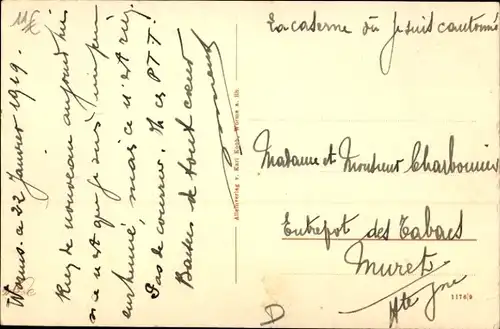 11€
Worms. a 22 Janvier 1919.
Rien de nouveau aujourd'hui
si ce n'est que je suis un peu
enrhumé, mais ce n'est rien.
Pas de courrier. Ah ces PTT.
Baisers de tout cœur
Alleinverlag v. Karl Worms a. Rh.
La caserne où je suis cantonné
Madame et Monsieur Charbonnier
Entrepot des Tabacs
Muret
Hte Gne
1176/9